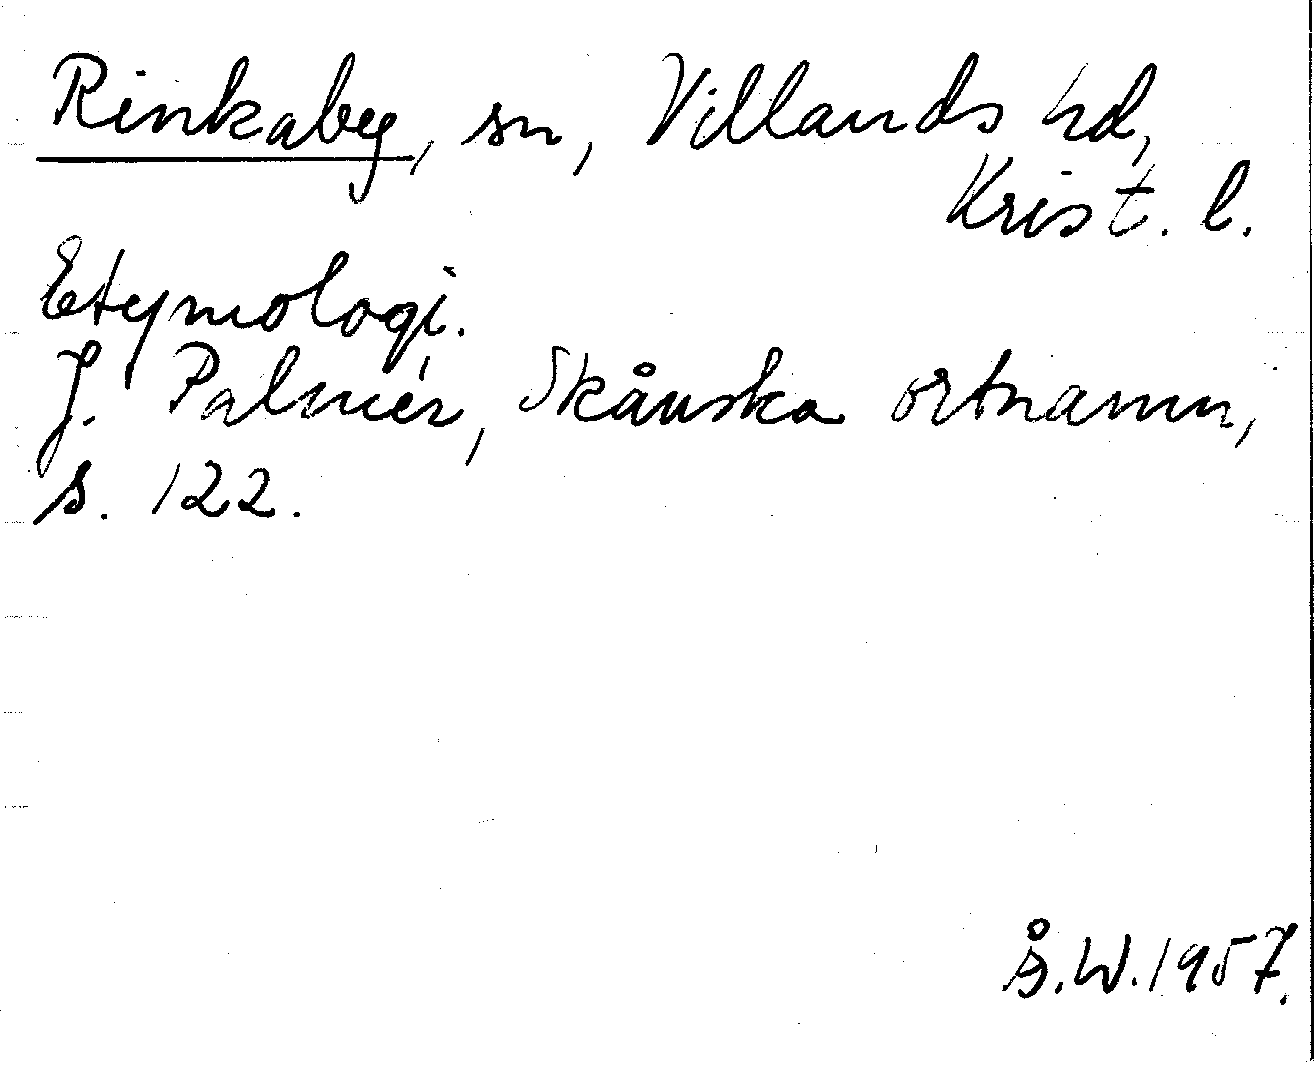 Rinkaby, sn, Villands hd,
Krist. l.
Etymologi.
J. Palmér, Skånska ortnamn,
s. 122.
Å.W.1957.